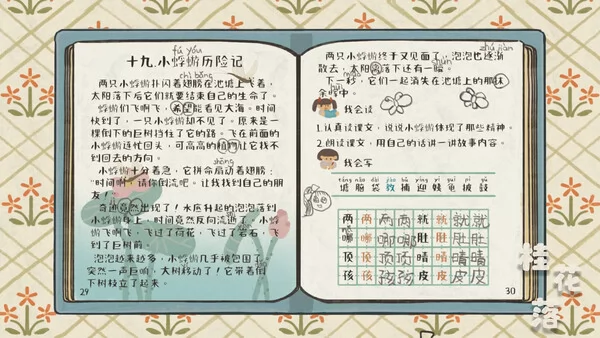 fú yóu
十九.小蜉蝣历险记
chì bǎng
两只小蜉蝣扑闪着翅膀在池塘上飞着,
太阳落下后它们就要结束自己的生命了
蜉蝣们飞啊飞,希望能看见大海。时间
快到了,一只小蜉蝣却不见了。原来是一
棵倒下的巨树挡住了它的路。飞在前面的
小蜉蝣连忙回头,可高高的植物让它找不
到回去的方向。
小蜉蝣十分着急,它拼命扇动着翅膀:
"时间啊!请你倒流吧。让我找到自己的朋
友!"
奇迹竟然出现了!水底升起的泡泡落到
小蜉蝣身上,时间竟然反向流逝 小蜉
蝣飞啊飞,飞过了荷花,飞过了岩石,飞
到了巨树前。
泡泡越来越多,小蜉蝣几乎被包围了。
突然一声巨响,大树移动了!它带着倒
下树枝立了起来。
29
zhú jiàn
两只小蜉蝣终于又见面了,泡泡也逐渐
散去,太阳落下还有一瞬。
下一秒,它们一起消失在池塘上的那抹
余晖中。
我会读
1.认真读课文,说说小蜉蝣体现了那些精神。
2.朗读课文,用自己的话讲一讲故事内容。
我会写
塘脑袋教捕迎姨龟披鼓
两两两两就就就就
哪哪哪哪肚肚肚肚
顶顶顶顶晴晴晴晴
孩孩孩孩皮皮皮皮
30
桂花落